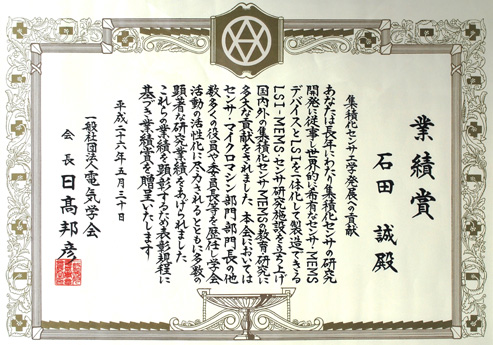 業績賞
石田 誠殿
集積化センサ工学発展への貢献
あなたは長年にわたり集積化センサの研究
開発に従事し世界的に希有なセンサ・MEMS
デバイスとLSIを一体化して製造できる
LSI・MEMS・センサ研究施設を立上げ
国内外の集積化センサ・MEMSの教育研究に
多大な貢献をされました 本会においては
センサ・マイクロマシン部門部門長の他
数多くの役員や委員長等を歴任し学会
活動の活性化に尽力されるとともに多数の
顕著な研究業績をあげられました
これらの業績を顕彰するため表彰規程に
基づき業績賞を贈呈いたします
平成二十六年五月三十日
一般社団法人電気学会
会長 日髙邦彦